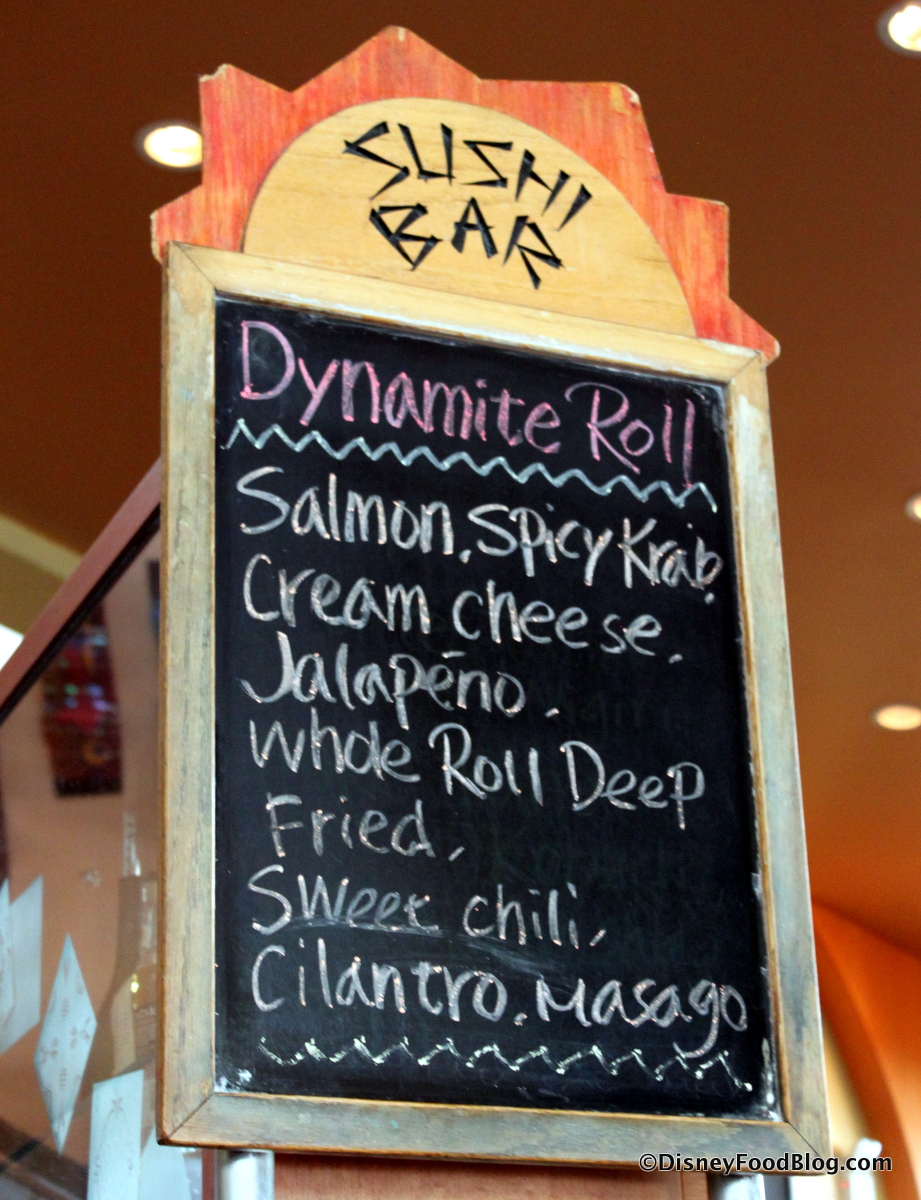 SUSHI
BAR
Dynamite Roll
Salmon, Spicy Krab,
Cream cheese,
Jalapēno,
Whole Roll Deep
Fried,
Sweet chili,
Cilantro, Masago
©DisneyFoodBlog.com